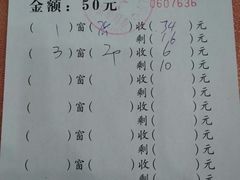 金额：50元 0607636
( 1 )窗( )收( 34 )元
剩( 16 )元
( 3 )窗( 2P )收( 6 )元
剩( 10 )元
( )窗( )收( )元
剩( )元
( )窗( )收( )元
剩( )元
( )窗( )收( )元
剩( )元
( )窗( )收( )元
剩( )元